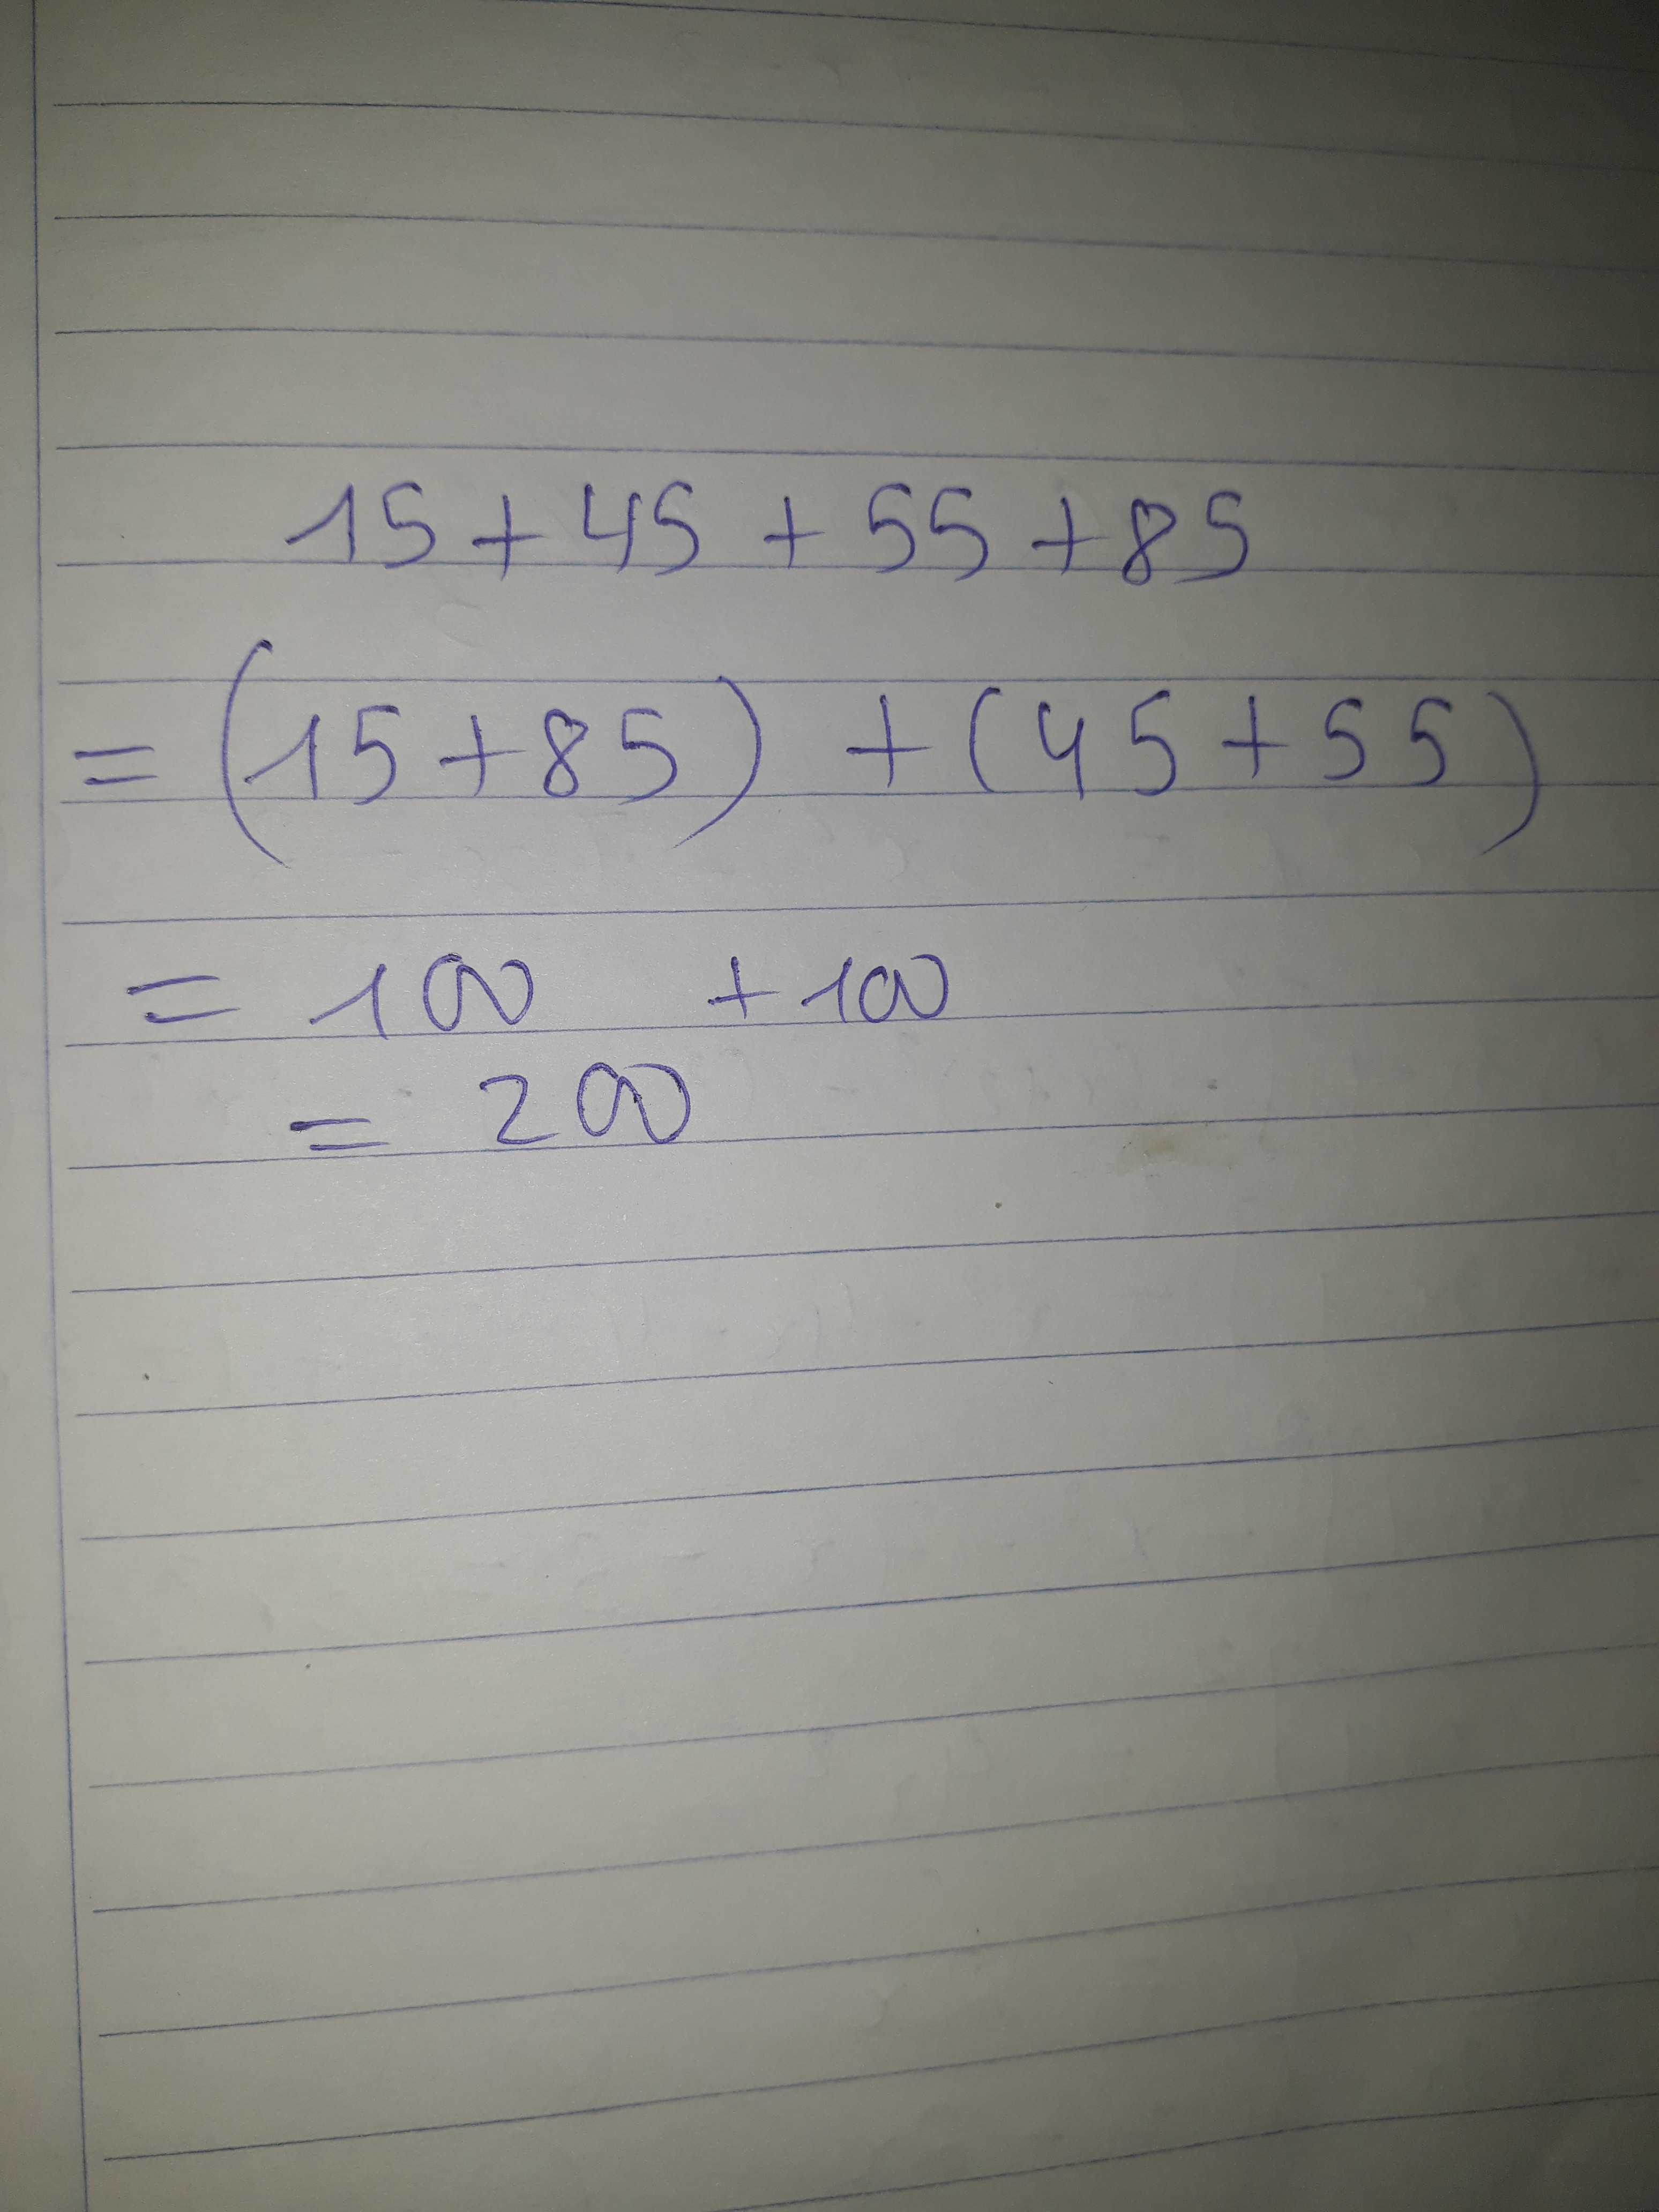 15 + 45 + 55 + 85
= (15 + 85) + (45 + 55)
= 100 + 100
= 200